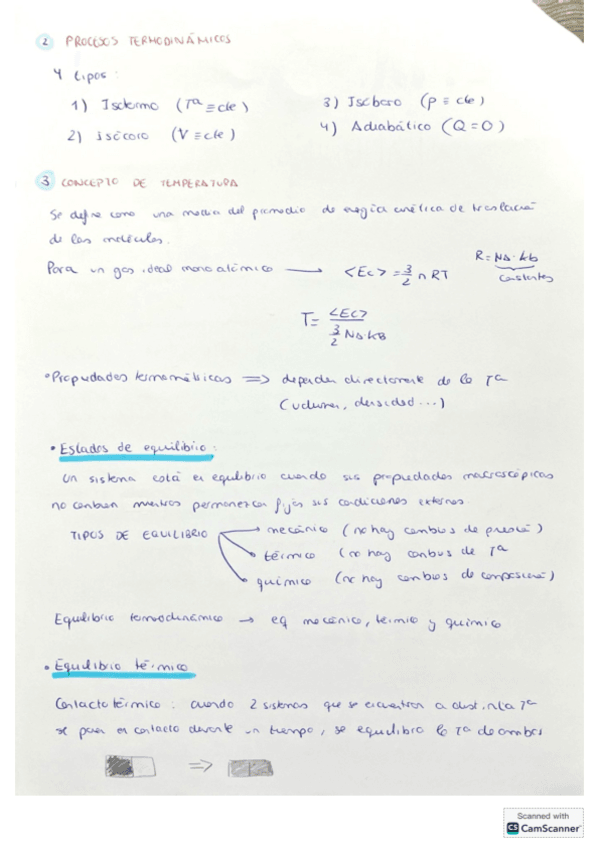 2 PROCESOS TERMODINÁMICOS
4 tipos:
1) Isotermo (Tª ≡ cte)
3) Isóbaro (p ≡ cte)
2) Isócoro (V ≡ cte)
4) Adiabático (Q = 0)
3 CONCEPTO DE TEMPERATURA
Se define como una medida del promedio de energía cinética de traslación
de las moléculas.
Para un gas ideal monoatómico → <Ec> = 3/2 n RT
R = NA · kb
constantes
T = <Ec> / 3/2 NA·kB
• Propiedades termométricas => dependen directamente de la Tª
(volumen, densidad...)
• Estados de equilibrio:
Un sistema está en equilibrio cuando sus propiedades macroscópicas
no cambien mientras permanezcan fijas sus condiciones externas.
TIPOS DE EQUILIBRIO → mecánico (no hay cambios de presión)
→ térmico (no hay cambios de Tª
→ químico (no hay cambios de composición)
Equilibrio termodinámico → eq mecánico, térmico y químico
• Equilibrio térmico
Contacto térmico: cuando 2 sistemas que se encuentran a distinta Tª
se ponen en contacto durante un tiempo, se equilibra la Tª de ambos
=>
Scanned with
CS CamScanner